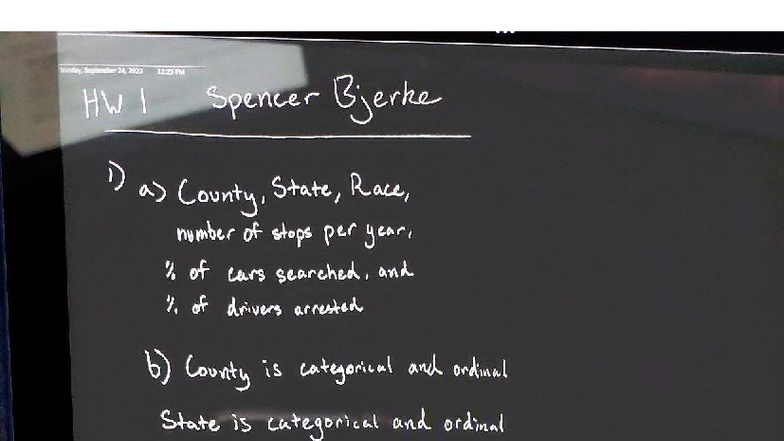 Sunday, September 24, 2023 12:25 PM
HW 1 Spencer Bjerke
1) a) County, State, Race,
number of stops per year,
% of cars searched, and
% of drivers arrested
b) County is categorical and ordinal
State is categorical and ordinal